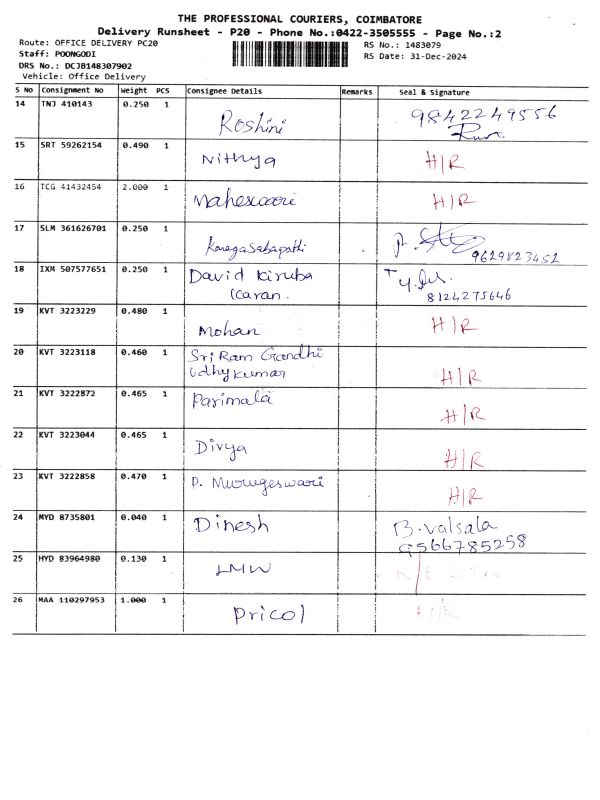 THE PROFESSIONAL COURIERS, COIMBATORE
Delivery Runsheet - P20 - Phone No.:0422-3505555 - Page No.:2
Route: OFFICE DELIVERY PC20
RS No.: 1483079
Staff: POONGODI
RS Date: 31-Dec-2024
DRS No.: DCJB148307902
Vehicle: Office Delivery
S No Consignment No Weight PCS Consignee Details Remarks Seal & Signature
14 TNJ 410143 0.250 1 Roshini 9842249556
15 SRT 59262154 0.490 1 Nithya H/R
16 TCG 41432454 2.000 1 Maheswari H/R
17 SLM 361626701 0.250 1 Kanagasabapathi 9629823452
18 IXM 507577651 0.250 1 David Kiruba
Karan. 8124275646
19 KVT 3223229 0.480 1 Mohan H/R
20 KVT 3223118 0.460 1 Sri Ram Gandhi
Udhykumar H/R
21 KVT 3222872 0.465 1 Parimala H/R
22 KVT 3223044 0.465 1 Divya H/R
23 KVT 3222858 0.470 1 P. Murugeswari H/R
24 MYD 8735801 0.040 1 Dinesh B. Valsala
9566785258
25 HYD 83964980 0.130 1 LMW
26 MAA 110297953 1.000 1 Pricol H/R